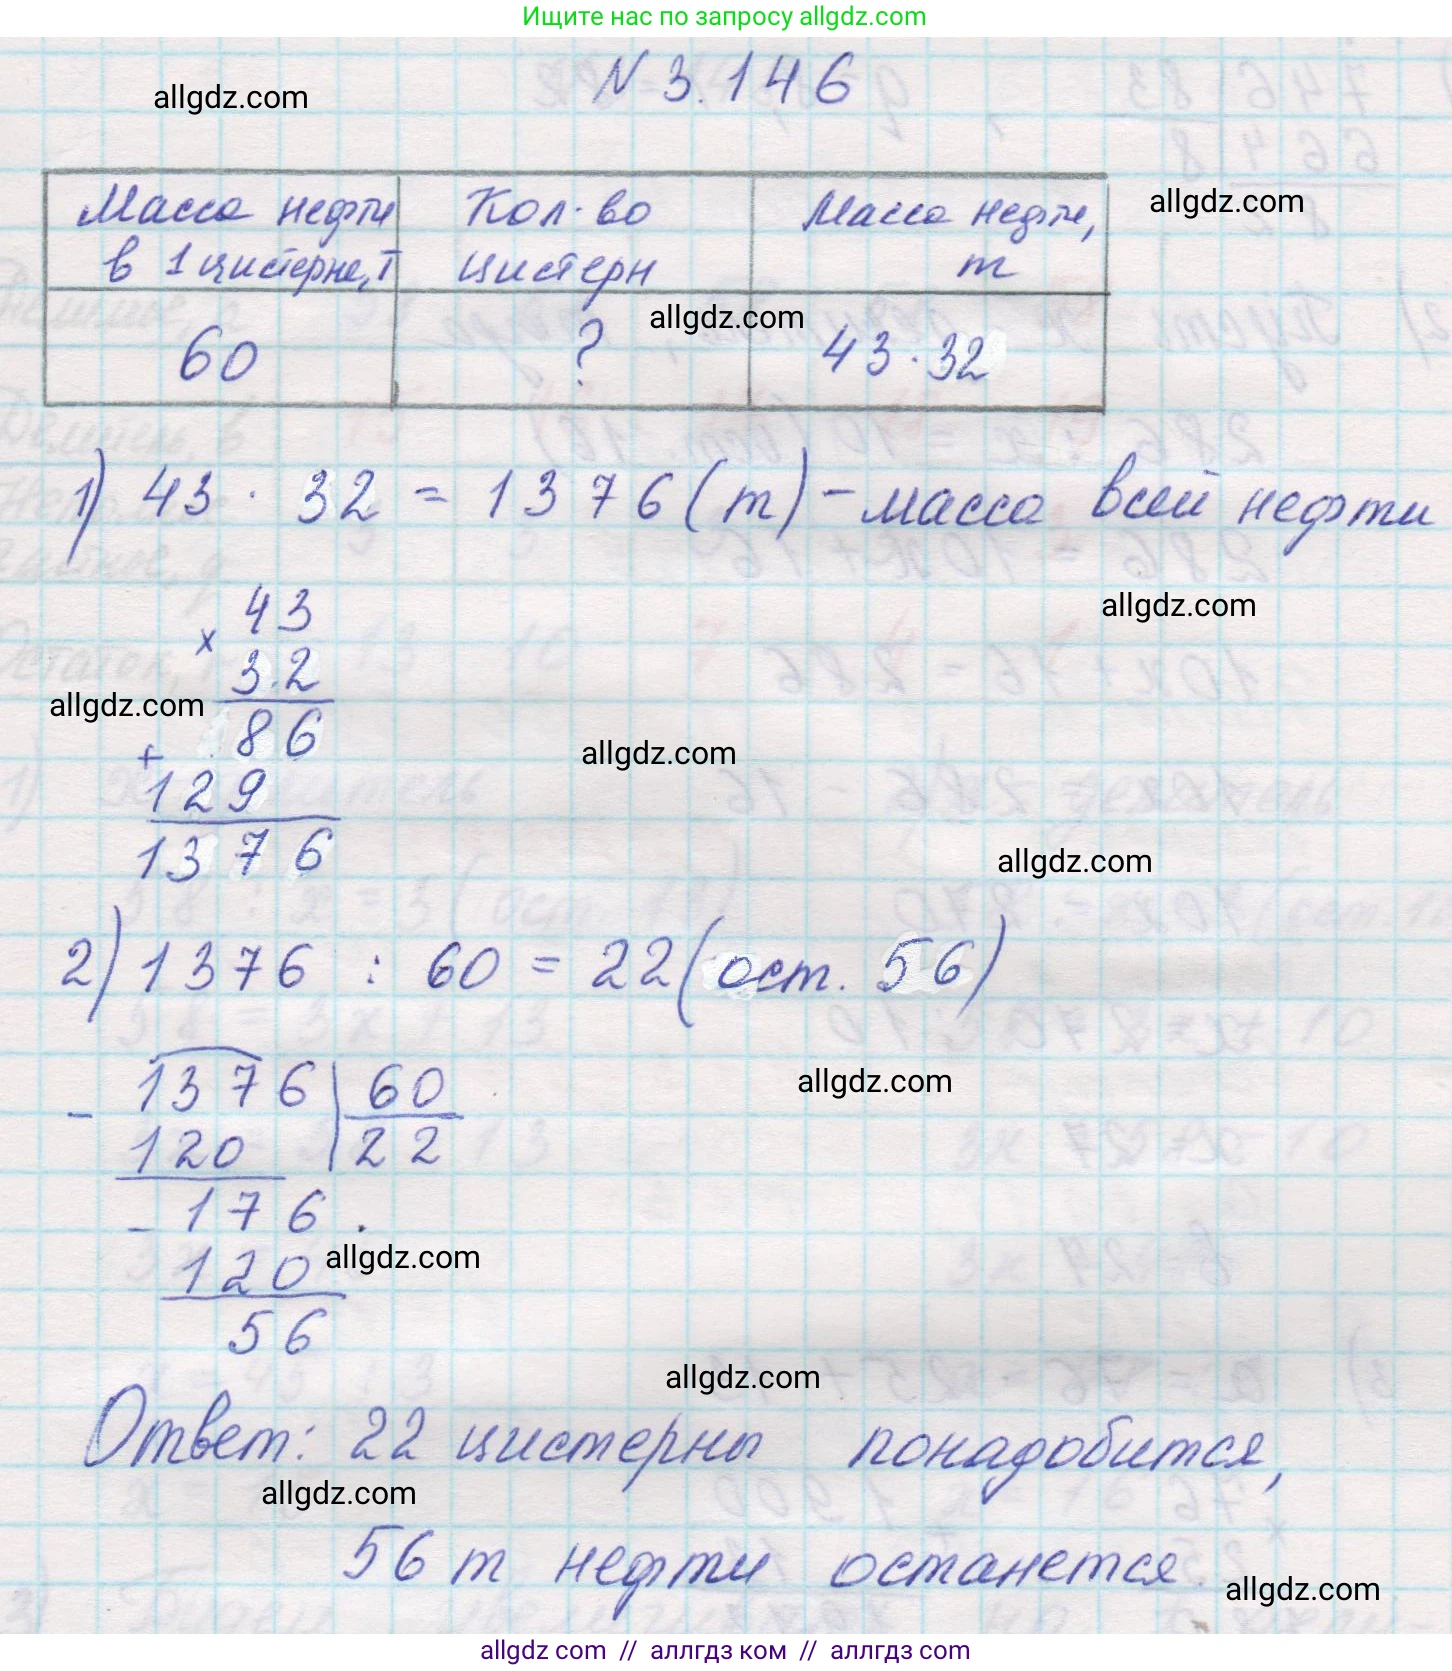 Ищите нас по запросу allgdz.com
N 3.146
allgdz.com
Масса нефти в 1 цистерне, т
Кол-во цистерн
Масса нефти, т
allgdz.com
60
?
43 · 32
allgdz.com
1) 43 · 32 = 1376 (т) - масса всей нефти
43
allgdz.com
×
32
allgdz.com
86
allgdz.com
+
129
1376
allgdz.com
2) 1376 : 60 = 22 (ост. 56)
1376 | 60
allgdz.com
- 120 | 22
- 176
120
allgdz.com
56
allgdz.com
Ответ: 22 цистерны понадобится,
allgdz.com
56 т нефти останется.
allgdz.com
allgdz com // аллгдз ком // аллгдз com